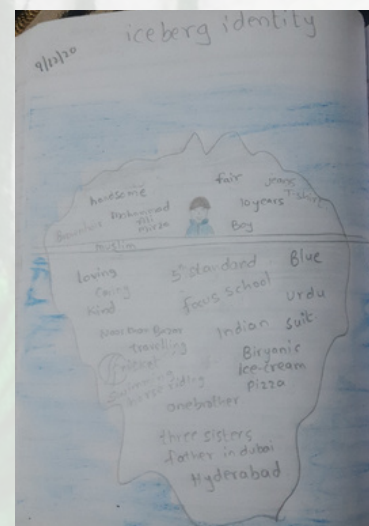 iceberg identity
9/12/20
handsome
fair
Jeans
T-shirt
Mohammad
Ali
mirza
10 years
Boy
muslim
loving
Caring
Kind
5th standard
focus school
Blue
Urdu
Indian
suit
travelling
Cricket
swimming
horse riding
Biryani
ice-cream
Pizza
one brother
three sisters
father in dubai
Hyderabad